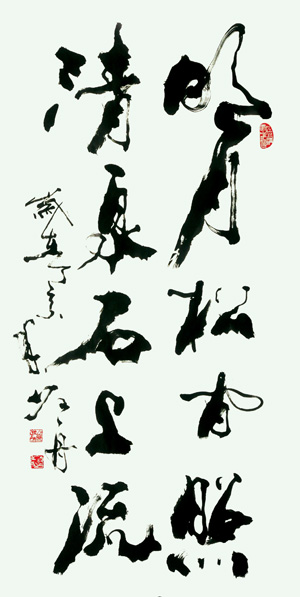 明月松間照
清泉石上流
歲在丁亥